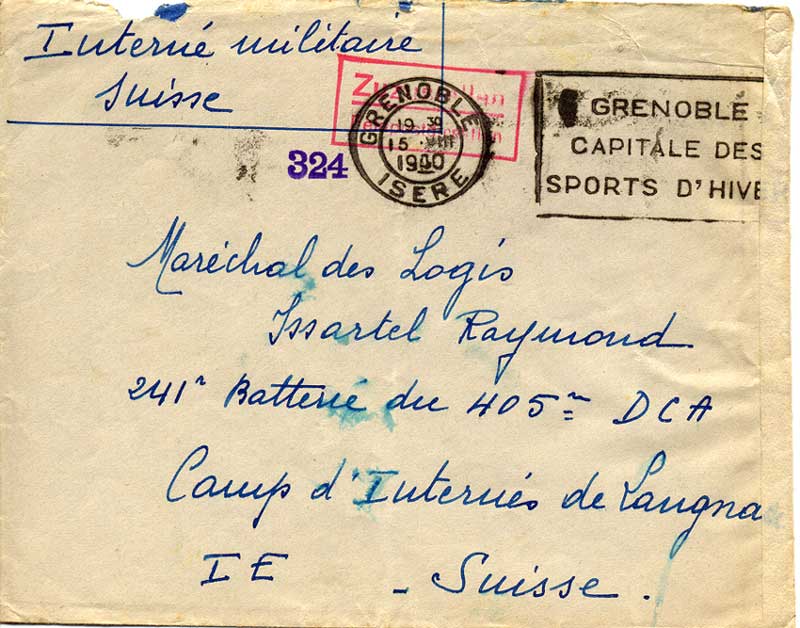 Interné militaire
Suisse
GRENOBLE
19 30
15 VIII
1940
ISERE
GRENOBLE
CAPITALE DES
SPORTS D'HIVE
324
Maréchal des Logis
Issartel Raymond
241e Batterie du 405me DCA
Camp d'Internés de Langna
I E - Suisse.